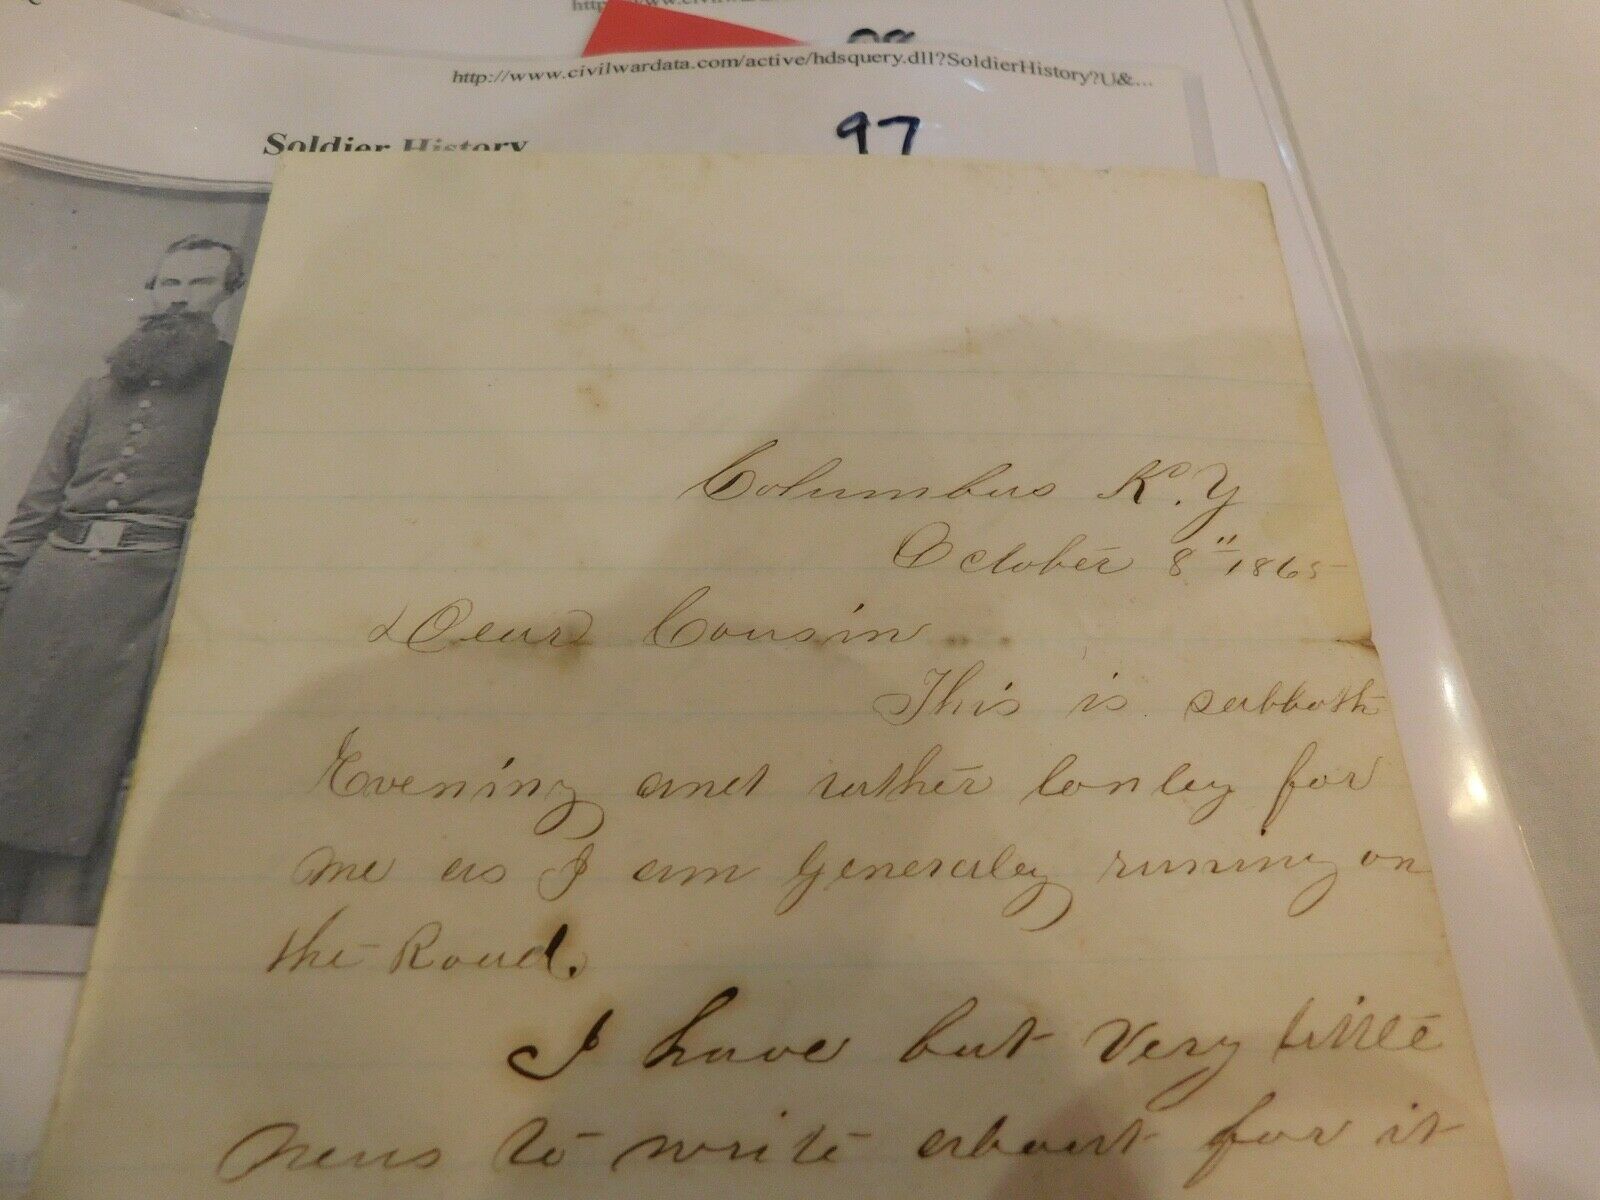 http://www.civilwardata.com/active/hdsquery.dll?SoldierHistory?U&...
97
Soldier History
Columbus K.Y
October 8" 1865
Dear Cousin
This is sabboth
Evening and rather lonley for
me as I am Generaley runing on
the Roud.
I have but Very little
news to write about for it